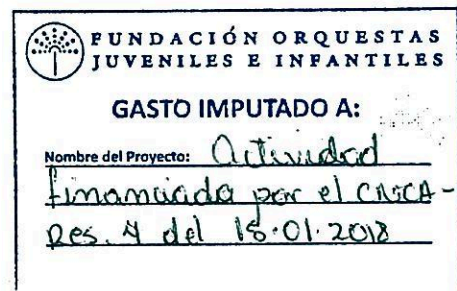 FUNDACIÓN ORQUESTAS
JUVENILES E INFANTILES
GASTO IMPUTADO A:
Nombre del Proyecto: Actividad
financiada por el CNCA-
Res. 4 del 18.01.2018